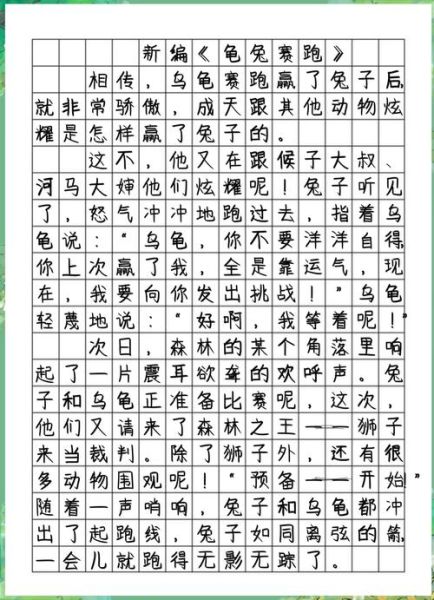 新编《龟兔赛跑》
相传，乌龟赛跑赢了兔子后，
就非常骄傲，成天跟其他动物炫
耀是怎样赢了兔子的。
这不，他又在跟候子大叔、
河马大婶他们炫耀呢！兔子听见
了，怒气冲冲地跑过去，指着乌
龟说：“乌龟，你不要洋洋自得，
你上次赢了我，全是靠运气，现
在，我要向你发出挑战！”乌龟
轻蔑地说：“好啊，我等着呢！”
次日，森林的某个角落里响
起了一片震耳欲聋的欢呼声。兔
子和乌龟正准备比赛呢，这次，
他们又请来了森林之王——狮子
来当裁判。除了狮子外，还有很
多动物围观呢！“预备——开始”
随着一声哨响，兔子和乌龟都冲
出了起跑线，兔子如同离弦的箭，
一会儿就跑得无影无踪了。